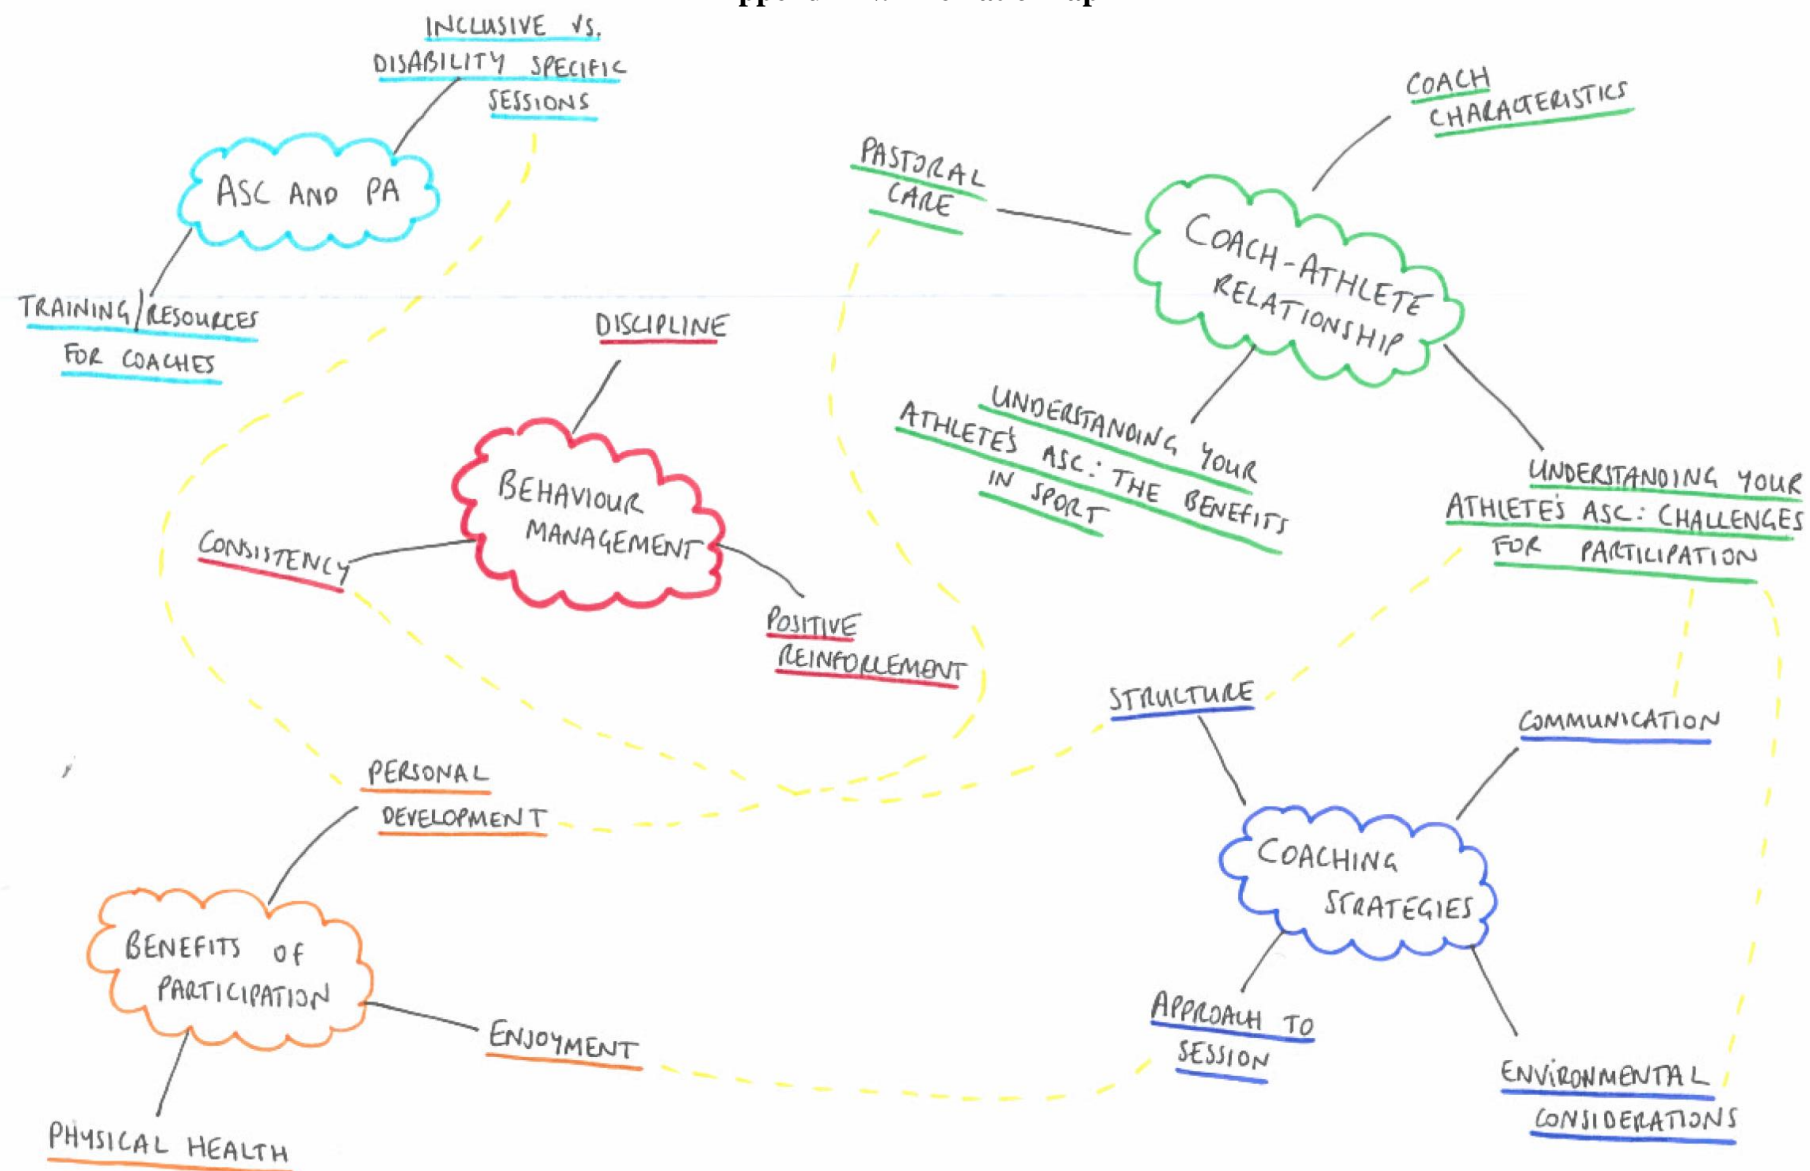 INCLUSIVE VS.
DISABILITY SPECIFIC
SESSIONS
ASC AND PA
TRAINING/RESOURCES
FOR COACHES
COACH
CHARACTERISTICS
PASTORAL
CARE
COACH-ATHLETE
RELATIONSHIP
UNDERSTANDING YOUR
ATHLETE'S ASC: THE BENEFITS
IN SPORT
UNDERSTANDING YOUR
ATHLETE'S ASC: CHALLENGES
FOR PARTICIPATION
DISCIPLINE
BEHAVIOUR
MANAGEMENT
CONSISTENCY
POSITIVE
REINFORCEMENT
STRUCTURE
COMMUNICATION
COACHING
STRATEGIES
APPROACH TO
SESSION
ENVIRONMENTAL
CONSIDERATIONS
PERSONAL
DEVELOPMENT
BENEFITS OF
PARTICIPATION
ENJOYMENT
PHYSICAL HEALTH